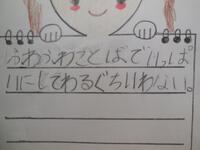 ふわふわさとばでいっぱ
いにしてわるぐちいわない。